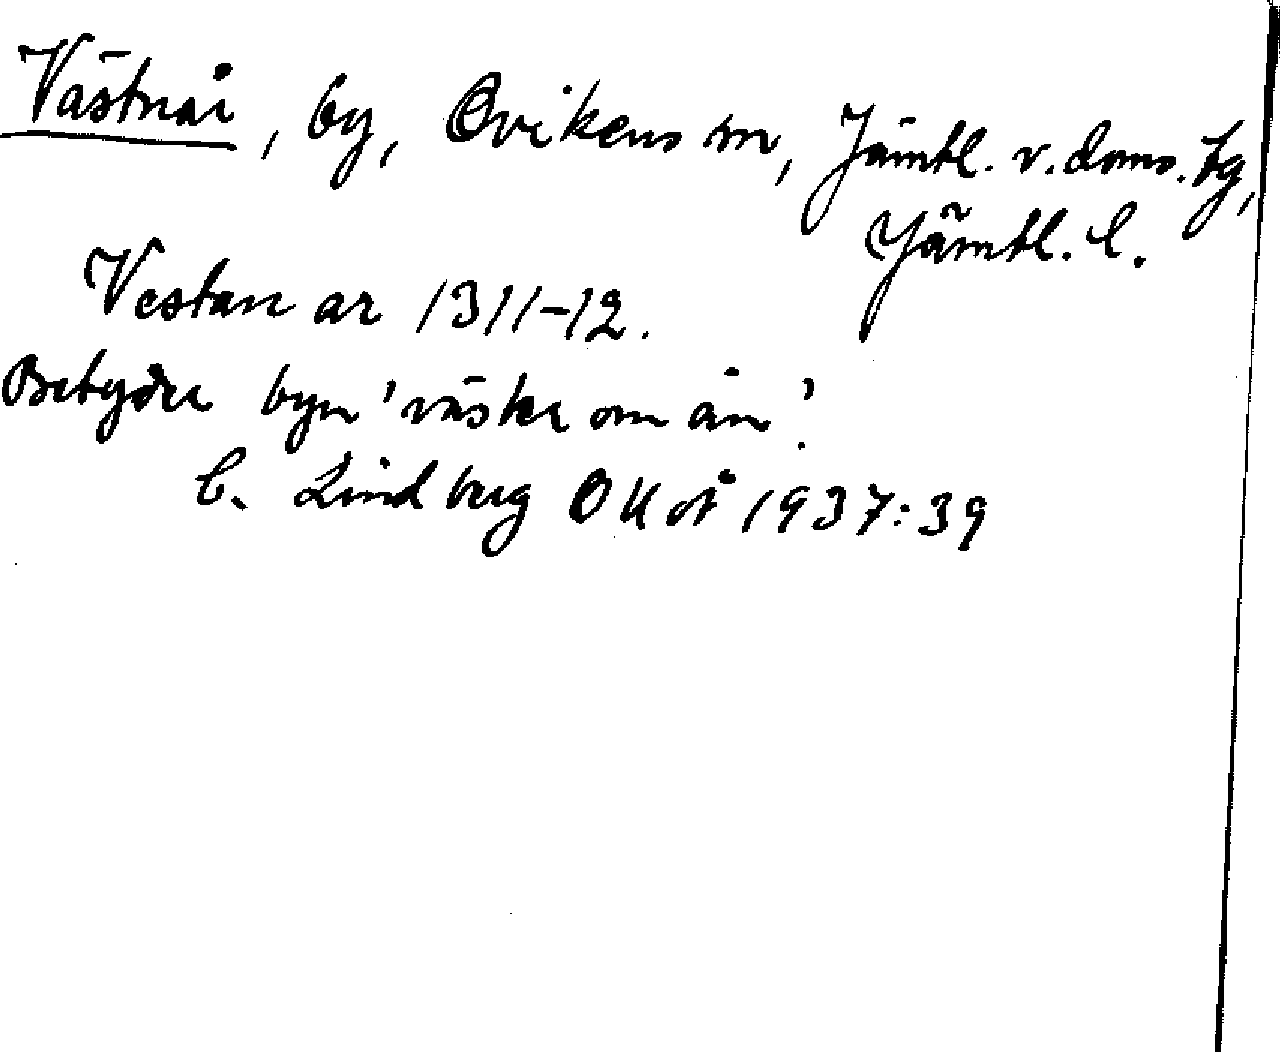 Västnår, by, Ovikens sn, Jämtl. v. doms. tg,
Jämtl. l.
Vestan ar 1311-12.
Betyder byn 'väster om ån'.
C. Lindberg OUoÅ 1937:39